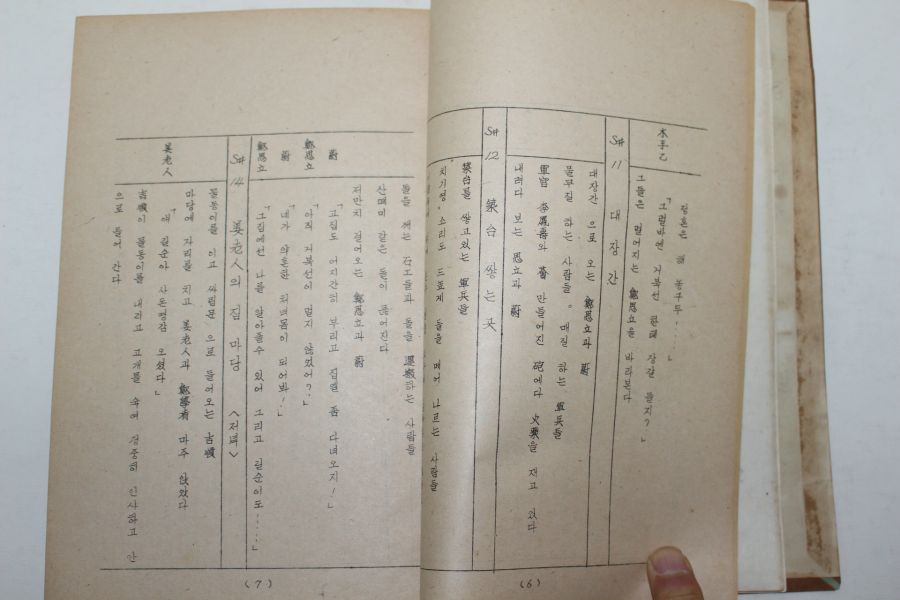 木手乙
「그럴바엔 거북선 타고 장갈 들지?」
그들은 멀어지는 鄭思立을 바라본다
S# 11 대장간
대장간 으로 오는 鄭思立과 蔚
풀무질 하는 사람들。 매질 하는 軍兵들
軍官 李鳳壽와 만들어진 砲에다 火藥을 재고 있다
내려다 보는 思立과 蔚
S# 12 築台쌓는곳
築台를 쌓고있는 軍兵들
소리도 드높게 돌을 메어 나르는 사람들
돌을 깨는 石工들과 돌을 運搬하는 사람들
산떼미 같은 돌이 옮어진다
저만치 걸어오는 鄭思立과 蔚
蔚 「고집도 어지간히 부리고 집엘 좀 다녀오지!」
鄭思立 「아직 거북선이 멀지 않었어?」
蔚 「내가 약혼한 처녀몸이 되어봐!」
鄭思立 「그림에선 나를 알아줄수 있어 그리고 길순이도‥‥」
S# 14 姜老人의 집 마당 <저녁>
물동이를 이고 싸립문 으로 들어오는 吉順
마당에 자리를 치고 姜老人과 마주 앉았다
姜老人 「얘 길순아 사돈영감 오셨다」
吉順이 물동이를 내리고 고개를 숙여 정중히 인사하고 안
으로 들어 간다
(6)
(7)